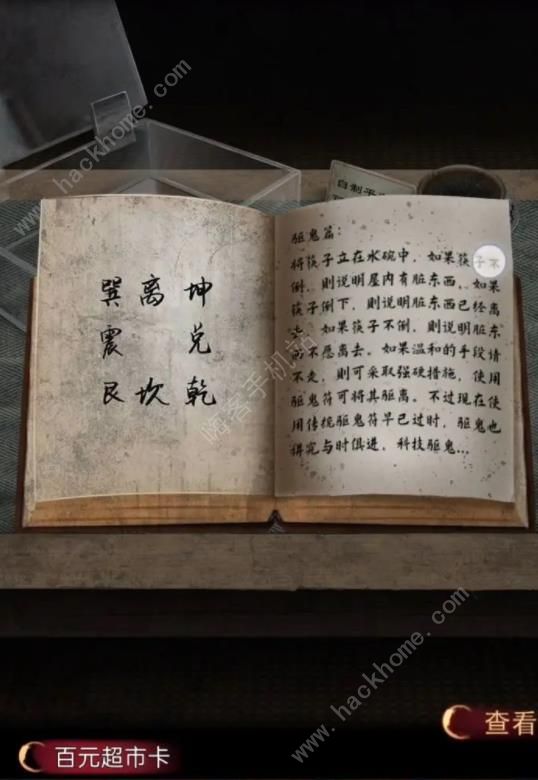 www.hackhome.com
自制子
巽 离 坤
震 兑
艮 坎 乾
驱鬼篇:
将筷子立在水碗中,如果筷子不
倒,则说明屋内有脏东西,如果
筷子倒下,则说明脏东西已经离
去。如果筷子不倒,则说明脏东
西不愿离去。如果温和的手段请
不走,则可采取强硬措施,使用
驱鬼符可将其驱离。不过现在使
用传统驱鬼符早已过时,驱鬼也
得究与时俱进,科技驱鬼...
嗨客手机站
www.hackhome.com
查看
百元超市卡